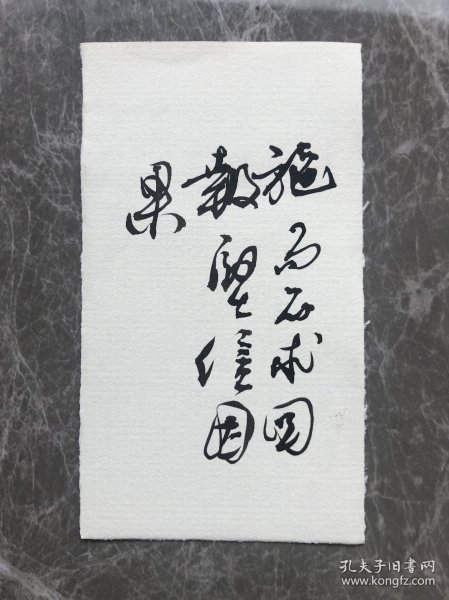 施而不求回
報坚信因
果
孔夫子旧书网
www.kongfz.com